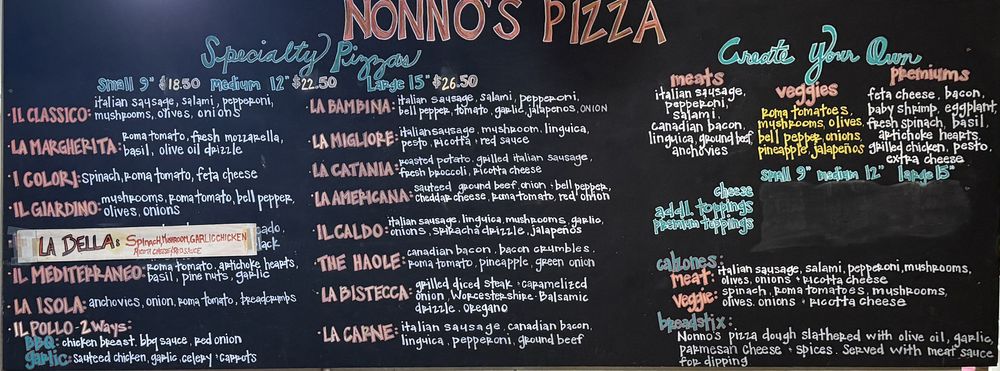 NONNO'S PIZZA
Specialty Pizzas
Small 9" $18.50 medium 12" $22.50 Large 15" $26.50
· IL CLASSICO: italian sausage, salami, pepperoni,
mushrooms, olives, onions
· LA MARGHERITA: roma tomato, fresh mozzarella,
basil, olive oil drizzle
· I COLORI: spinach, roma tomato, feta cheese
· IL GIARDINO: mushrooms, roma tomato, bell pepper,
olives, onions
LA BELLA: SPINACH, MUSHROOM, GARLIC CHICKEN
RICOTTA CHEESE/RED SAUCE
· IL MEDITERRANEO: roma tomato, artichoke hearts,
basil, pine nuts, garlic
· LA ISOLA: anchovies, onion, roma tomato, breadcrumbs
· IL POLLO - 2 Ways:
BBQ: chicken breast, bbq sauce, red onion
garlic: sauteed chicken, garlic, celery + carrots
· LA BAMBINA: italian sausage, salami, pepperoni,
bell pepper, tomato, garlic, jalapeños, ONION
· LA MIGLIORE: italian sausage, mushroom, linguica,
pesto, ricotta + red sauce
· LA CATANIA: roasted potato, grilled italian sausage,
fresh broccoli, ricotta cheese
· LA AMERICANA: sauteed ground beef, onion + bell pepper,
cheddar cheese, roma tomato, red onion
· IL CALDO: italian sausage, linguica, mushrooms, garlic,
onions, srikacha drizzle, jalapeños
· THE HAOLE: canadian bacon, bacon crumbles,
roma tomato, pineapple, green onion
· LA BISTECCA: grilled diced steak + caramelized
onion, Worcestershire-Balsamic
drizzle, oregano
· LA CARNE: italian sausage, canadian bacon,
linguica, pepperoni, ground beef
Create Your Own
meats
italian sausage,
pepperoni,
salami,
canadian bacon,
linguica, ground beef,
anchovies
veggies
roma tomatoes,
mushrooms, olives,
bell pepper, onions,
pineapple, jalapeños
premiums
feta cheese, bacon,
baby shrimp, eggplant,
fresh spinach, basil,
artichoke hearts,
grilled chicken, pesto,
extra cheese
small 9" medium 12" large 15"
cheese
addl. toppings
premium toppings
calzones:
meat: italian sausage, salami, pepperoni, mushrooms,
olives, onions + ricotta cheese
veggie: spinach, roma tomatoes, mushrooms,
olives, onions + ricotta cheese
breadstix:
Nonno's pizza dough slathered with olive oil, garlic,
parmesan cheese + spices. Served with meat sauce
for dipping